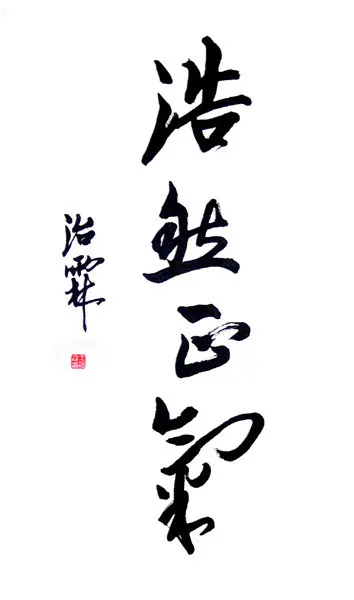 浩然正氣
治霖